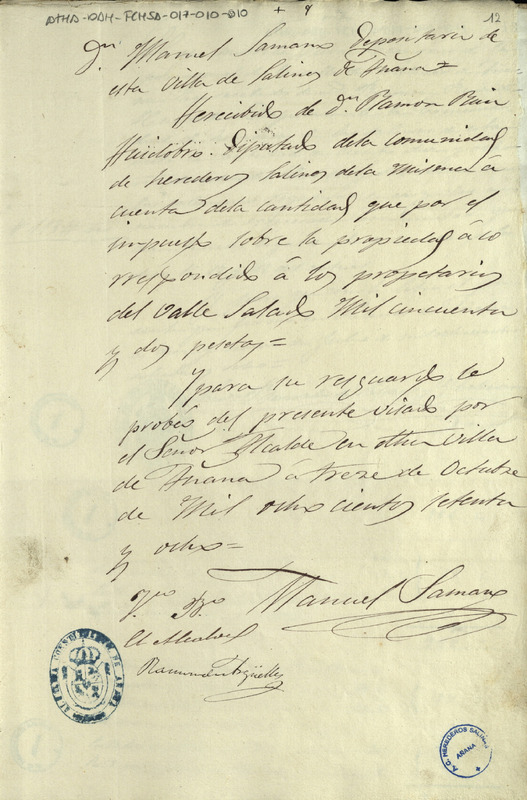 ATHA-DAH-FCHSA-017-010-010
12
Dn. Manuel Samano Depositario de
esta Villa de Salinas de Añana=
Herecibido de dn. Ramon Ruiz
Huidobro. Diputado dela comunidad
de herederos Salinos dela misma á
cuenta dela cantidad que por el
impuesto sobre la propiedad á co
rrespondido á los propetarios
del Valle Salado Mil cincuenta
y dos pesetas=
Ypara su resguardo le
probéo del presente visado por
el Señor Alcalde en otha villa
de Añana á treze de Octubre
de Mil ocho cientos setenta
y ocho=
Vto. Bo.
Manuel Samano
El Alcalde
Ramon Argüelles
A.C. HEREDEROS SALINAS
AÑANA